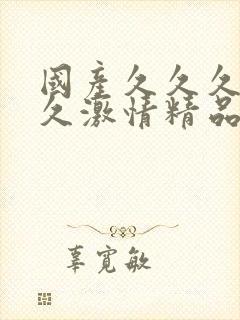 國產久久久
久激情精品
辜寬敏